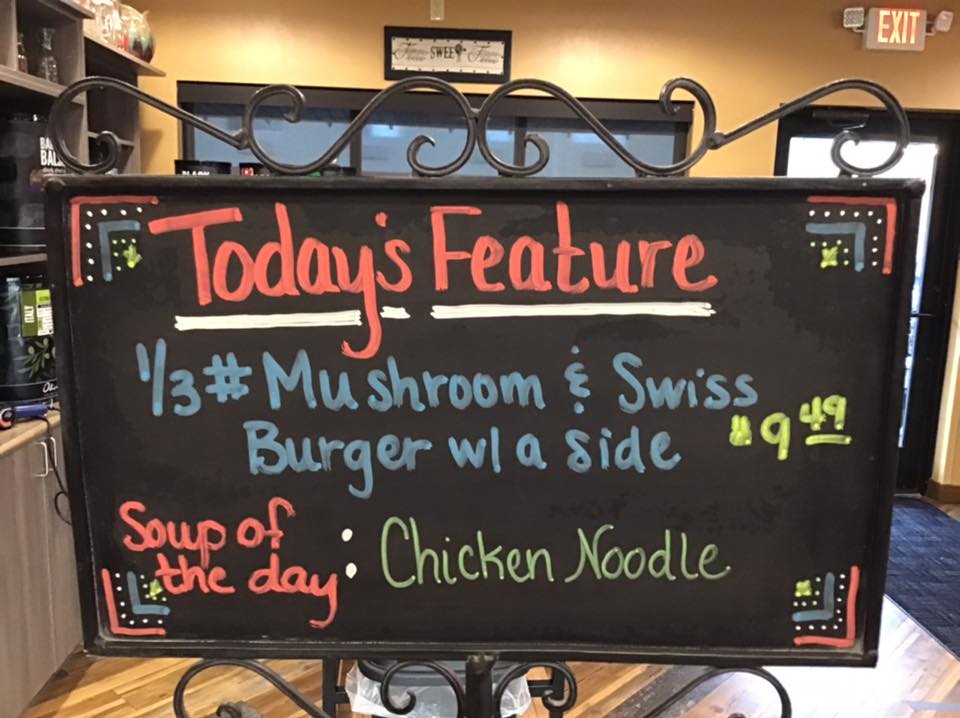 EXIT
SWEET
BAL
ITALY
Today's Feature
1/3# Mushroom & Swiss
Burger w/ a side $9.49
Soup of
the day : Chicken Noodle